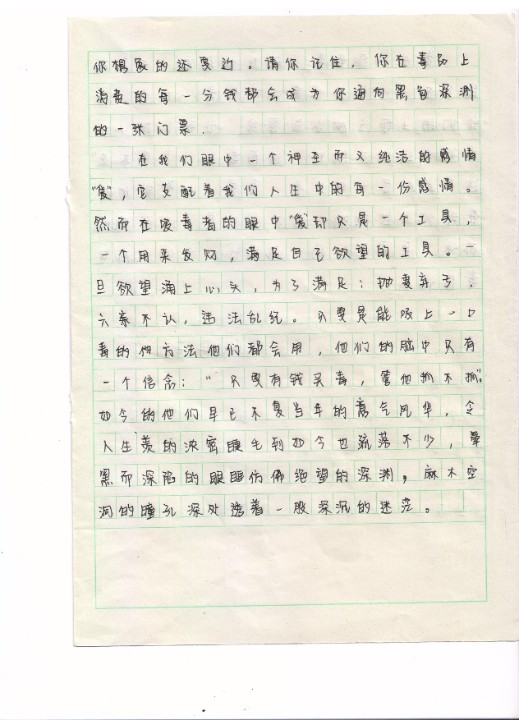 你想象的还要近。请你记住，你在毒品上
消费的每一分钱都会成为你通向黑暗深渊
的一张门票.
在我们眼中一个神圣而又纯洁的感情
“爱”，它支配着我们人生中的每一份感情。
然而在吸毒者的眼中“爱”却只是一个工具，
一个用来发财，满足自己欲望的工具。一
旦欲望涌上心头，为了满足：抛妻弃子，
六亲不认，违法乱纪。只要是能吸上一口
毒的他方法他们都会用，他们的脑中只有
一个信念：“只要有钱买毒，管他抓不抓”。
如今的他们早已不复当年的意气风华，令
人生羡的浓密睫毛到如今也疏落不少，晕
黑而深陷的眼眶仿佛绝望的深渊，麻木空
洞的瞳孔深处透着一股深沉的迷茫。